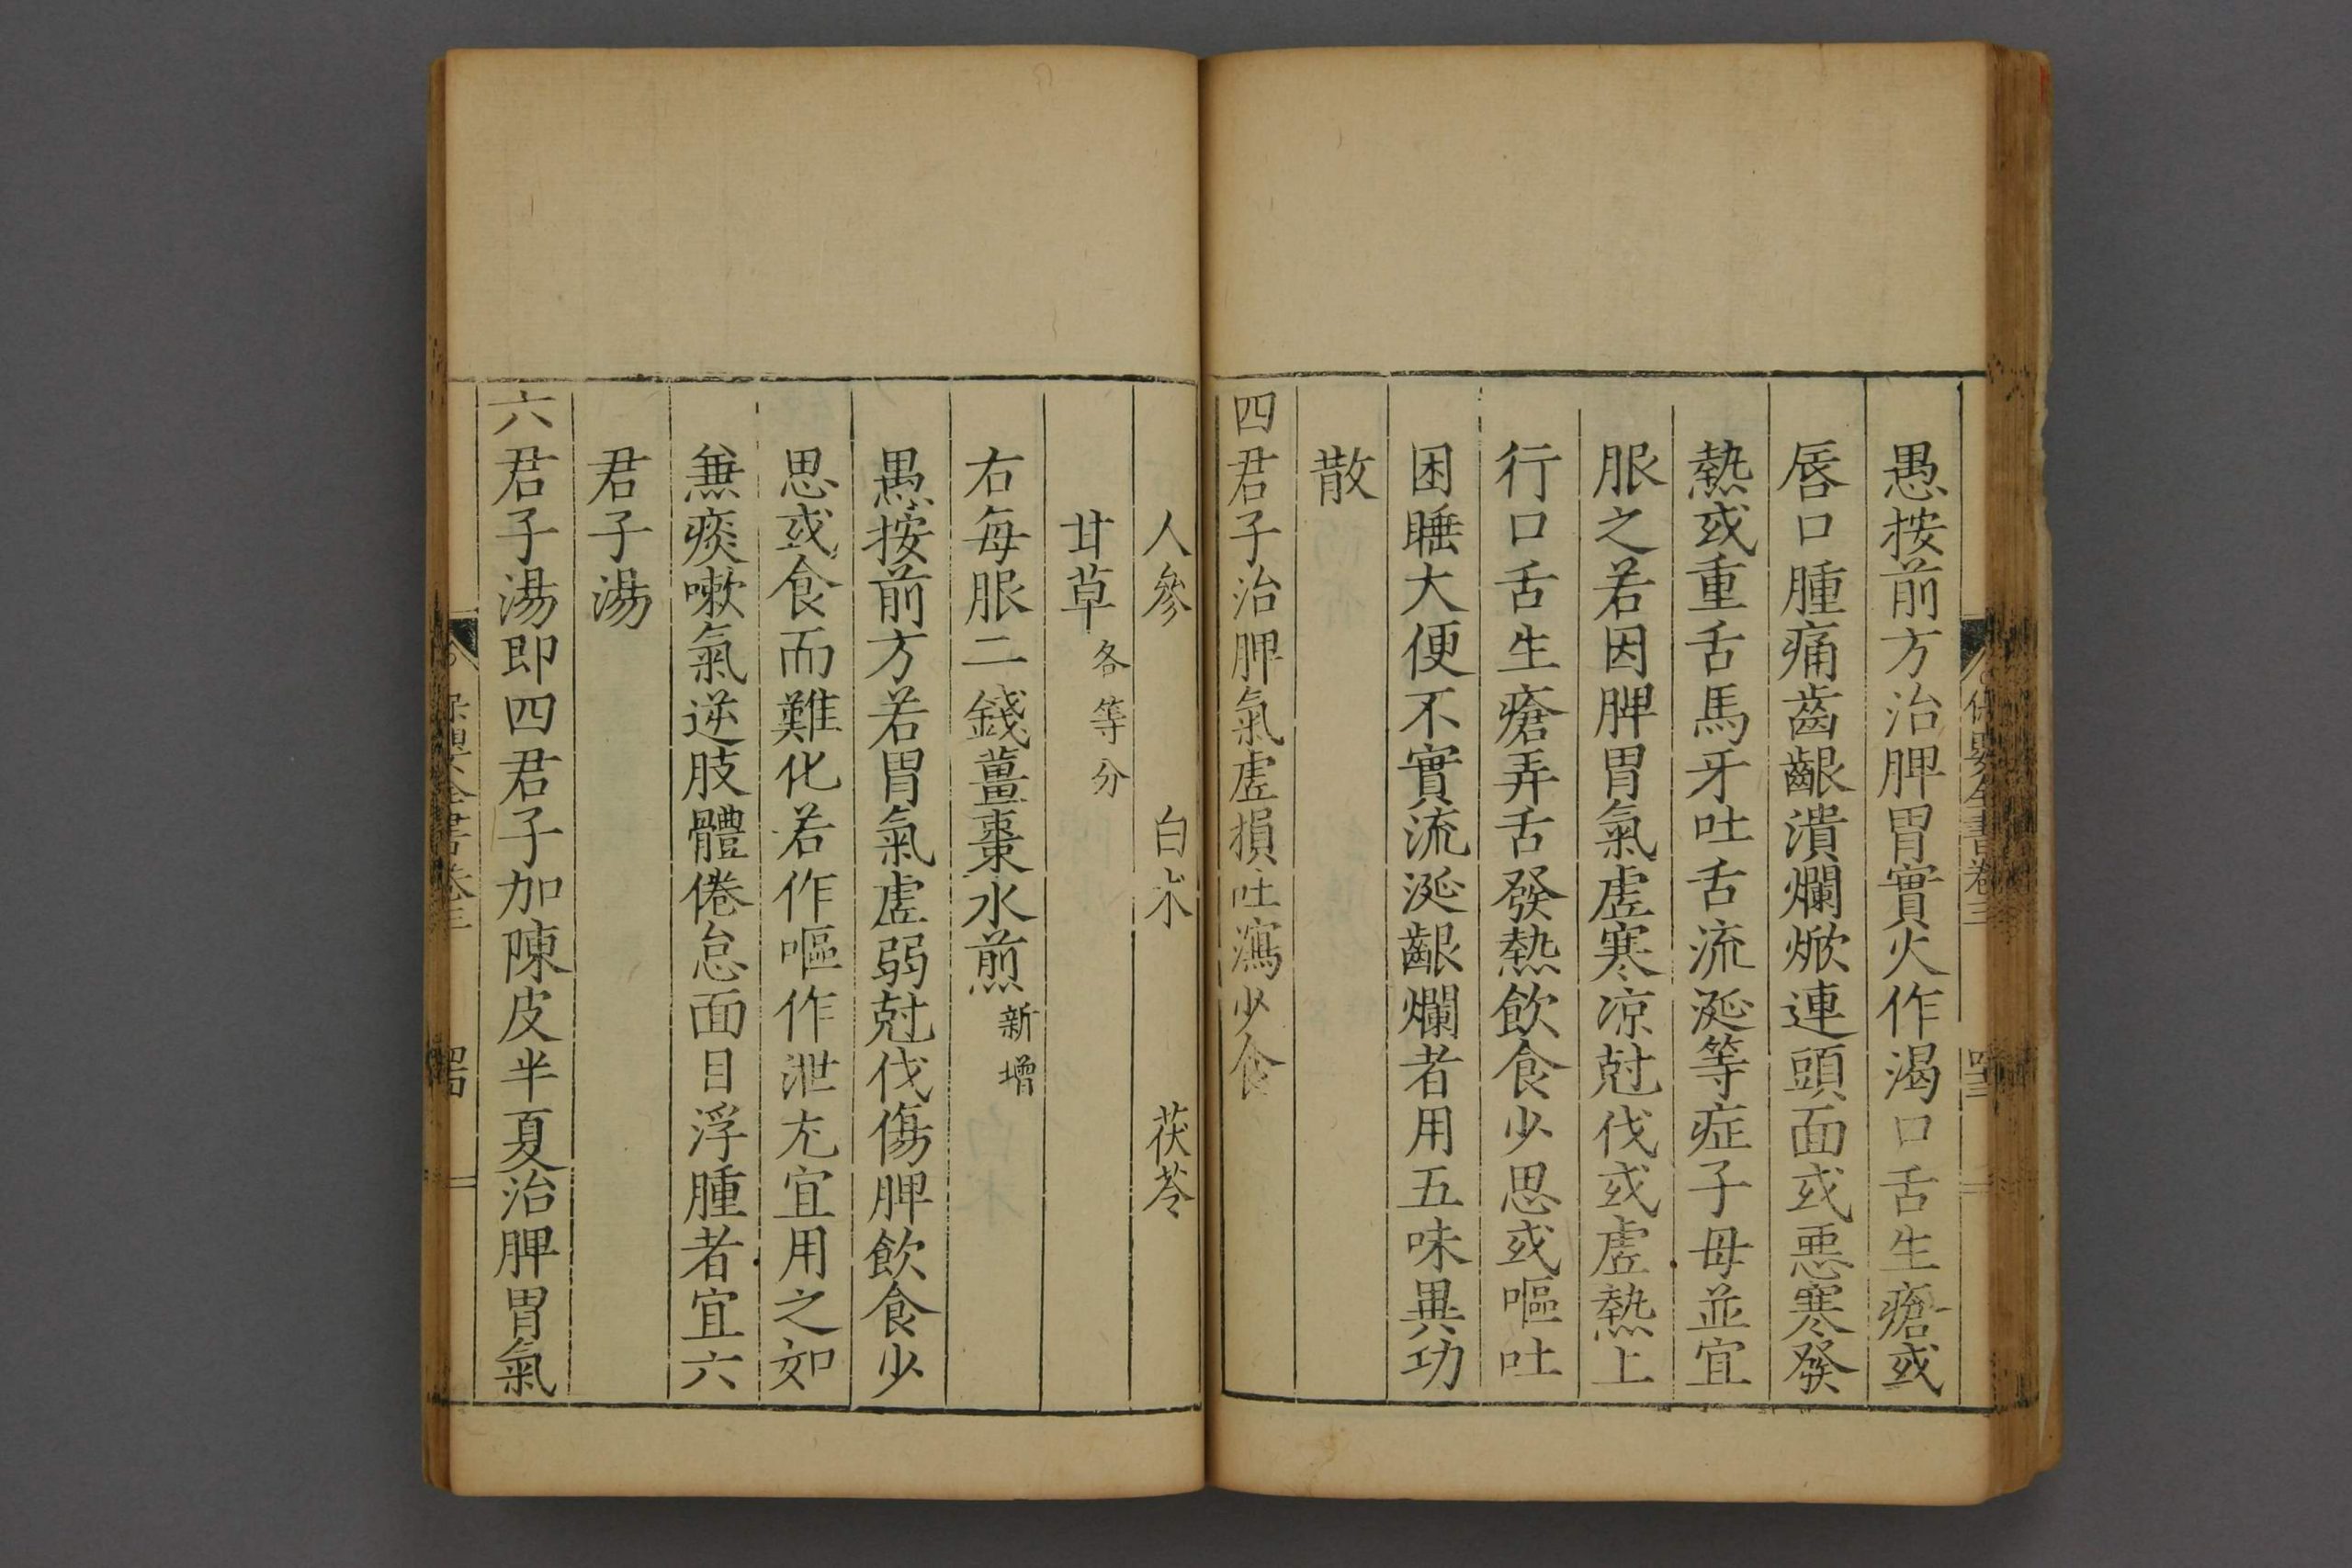 愚按前方治脾胃實火作渴口舌生瘡或
唇口腫痛齒齦潰爛焮連頭面或惡寒發
熱或重舌馬牙吐舌流涎等症子母並宜
服之若因脾胃氣虛寒凉尅伐或虛熱上
行口舌生瘡弄舌發熱飲食少思或嘔吐
困睡大便不實流涎齦爛者用五味異功
散
四君子治脾氣虛損吐瀉少食
人參 白朮 茯苓
甘草各等分
右每服二錢薑棗水煎新增
愚按前方若胃氣虛弱尅伐傷脾飲食少
思或食而難化若作嘔作泄尤宜用之如
無痰嗽氣逆肢體倦怠面目浮腫者宜六
君子湯
六君子湯即四君子加陳皮半夏治脾胃氣